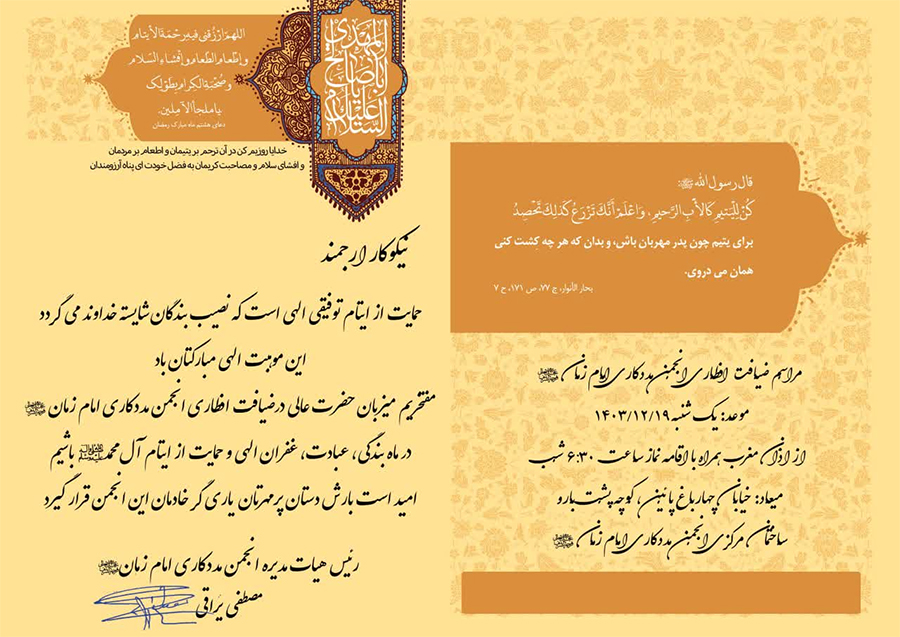 اللهم ارزقنی فیه رحمة الأیتام
و إطعام الطعام و إفشاء السلام
و صحبة الکرام بطولک
یا ملجأ الآملین.
دعای هشتم ماه مبارک رمضان
خدایا روزیم کن در آن ترحم بر یتیمان و اطعام بر مردمان
و افشای سلام و مصاحبت کریمان به فضل خودت ای پناه آرزومندان
السلام علیک یا اباصالح المهدی
نیکوکار ارجمند
حمایت از ایتام توفیقی الهی است که نصیب بندگان شایسته خداوند می گردد
این موهبت الهی مبارکتان باد
مفتخریم میزبان حضرت عالی در ضیافت افطاری انجمن مددکاری امام زمان
در ماه بندگی، عبادت، غفران الهی و حمایت از ایتام آل محمد باشیم
امید است بارش دستان پرمهرتان یاری گر خادمان این انجمن قرار گیرد
رئیس هیات مدیره انجمن مددکاری امام زمان
مصطفی یراقی
قال رسول الله ﷺ:
کُنْ لِلْیَتیمِ کَالأَبِ الرَّحیمِ، وَاعْلَمْ أَنَّکَ تَزْرَعُ کَذلِکَ تَحْصِدُ
برای یتیم چون پدر مهربان باش، و بدان که هر چه کشت کنی
همان می دروی.
بحار الأنوار، ج ۷۷، ص ۱۷۱، ح ۷
مراسم ضیافت افطاری انجمن مددکاری امام زمان
موعد: یک شنبه ۱۴۰۳/۱۲/۱۹
از اذان مغرب همراه با اقامه نماز ساعت ۶:۳۰ شب
میعاد: خیابان چهارباغ پائین، کوچه پشت بارو
ساختمان مرکزی انجمن مددکاری امام زمان